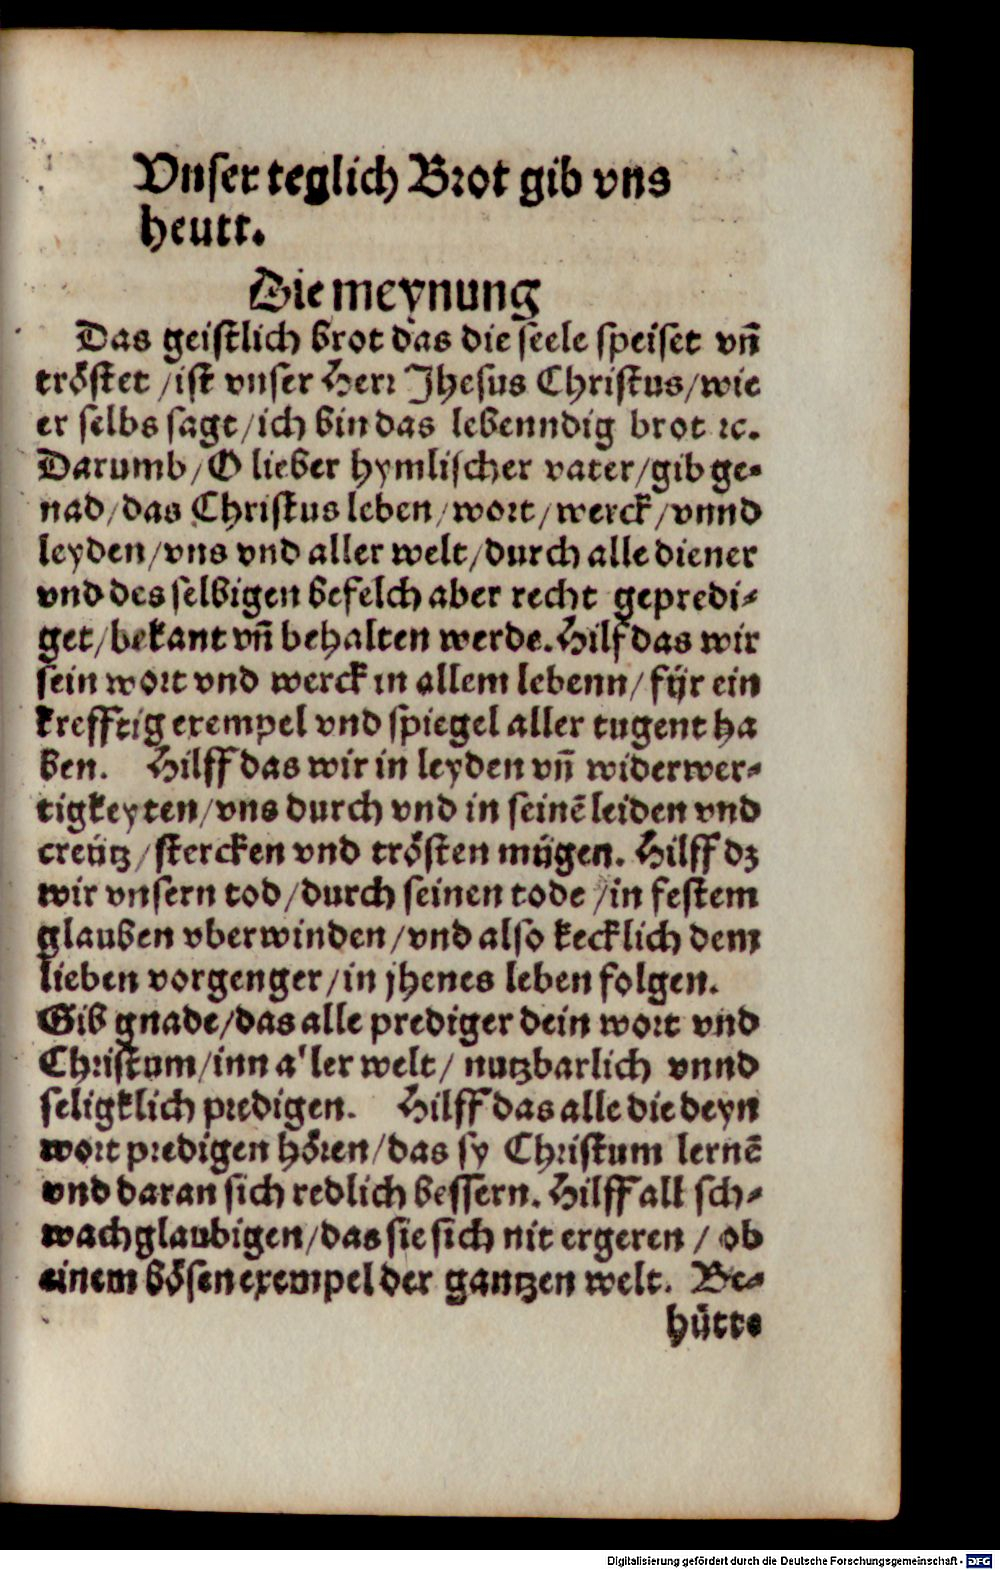 Vnser teglich Brot gib vns
heutt.
Die meynung
Das geistlich brot das die seele speiset vn̄
tröstet /ist vnser Herr Jhesus Christus/wie
er selbs sagt/ich bin das lebenndig brot ꝛc.
Darumb/O lieber hymlischer vater/gib ge⸗
nad/das Christus leben/wort/werck/vnnd
leyden/vns vnd aller welt/durch alle diener
vnd des selbigen befelch aber recht gepredi⸗
get/bekant vn̄ behalten werde. Hilf das wir
sein wort vnd werck in allem lebenn/für ein
krefftig exempel vnd spiegel aller tugent ha
ben. Hilff das wir in leyden vn̄ widerwer⸗
tigkeyten/vns durch vnd in seinē leiden vnd
creütz/stercken vnd trösten mügen. Hilff dz
wir vnsern tod/durch seinen tode /in festem
glauben vberwinden/vnd also kecklich dem
lieben vorgenger/in jhenes leben folgen.
Gib gnade/das alle prediger dein wort vnd
Christum/inn aller welt/ nutzbarlich vnnd
seligklich predigen. Hilff das alle die deyn
wort predigen hören/das sy Christum lernē
vnd daran sich redlich bessern. Hilff all sch⸗
wachglaubigen/das sie sich nit ergeren / ob
einem bösen exempel der gantzen welt. Be⸗
hütte
Digitalisierung gefördert durch die Deutsche Forschungsgemeinschaft - DFG